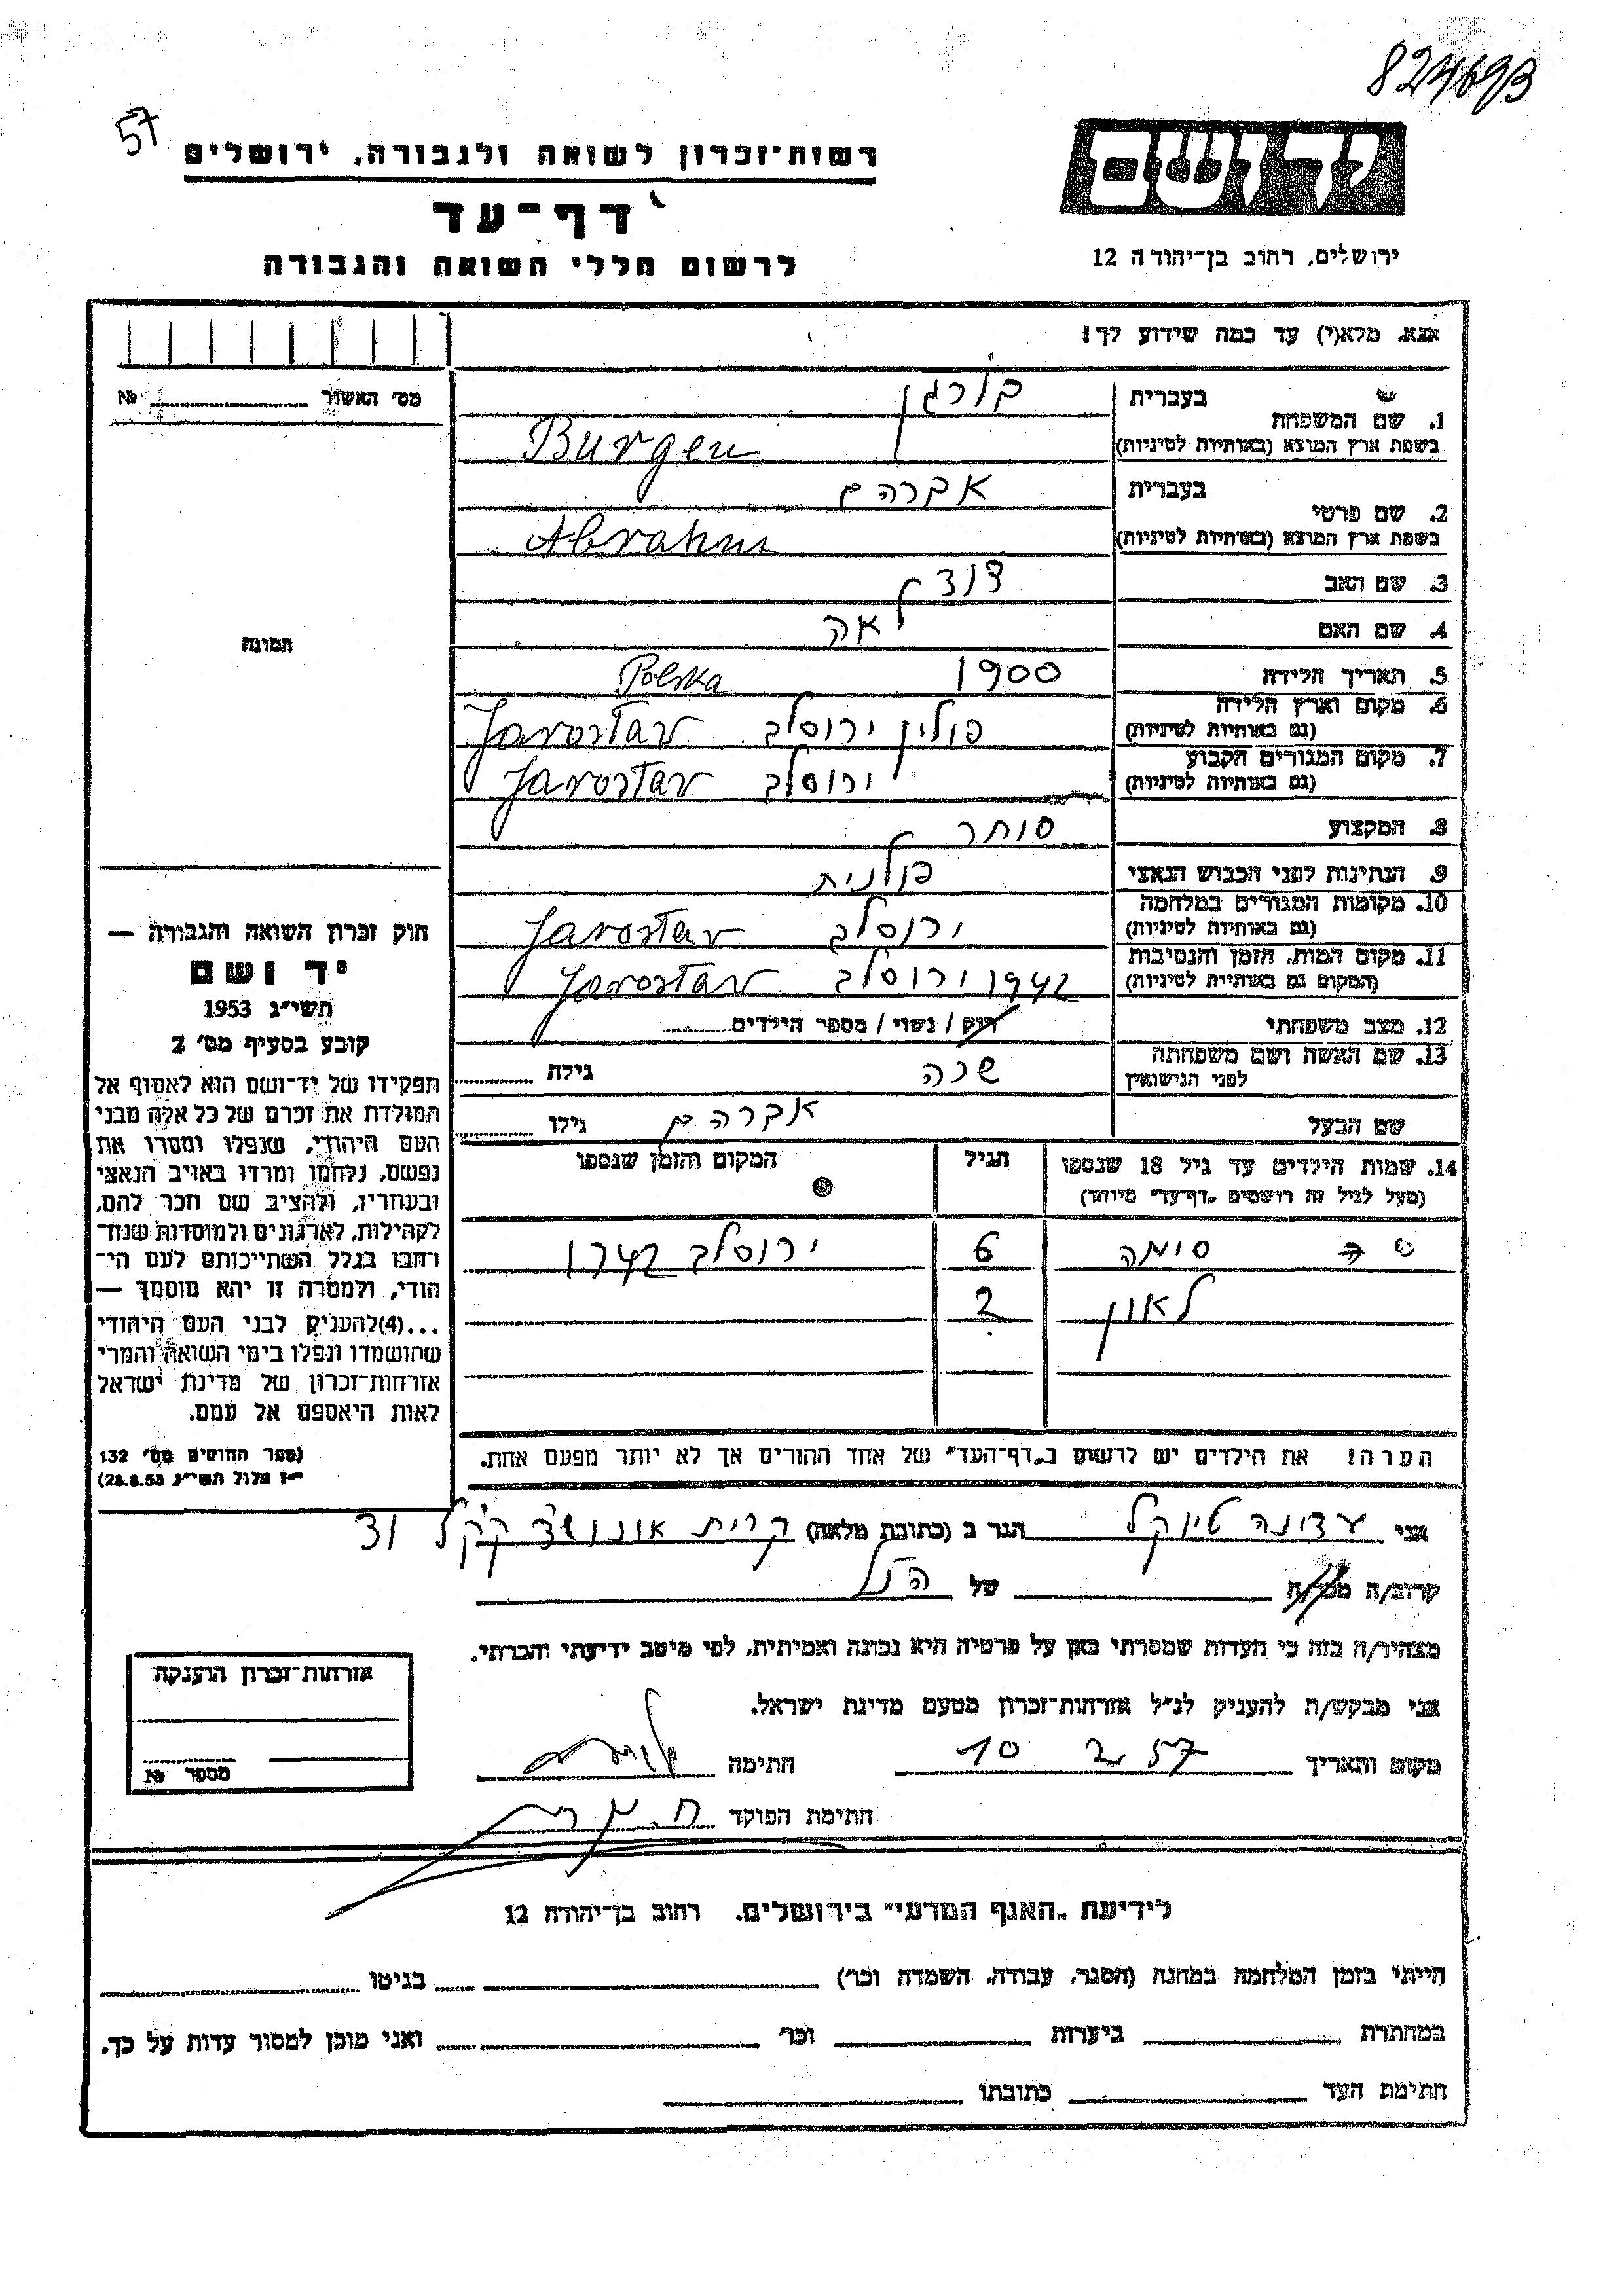 824693
57
רשות־זכרון לשואה ולגבורה, ירושלים
יד ושם
דף־עד
לרשום חללי השואה והגבורה
ירושלים, רחוב בן־יהודה 12
אנא, מלא(י) עד כמה שידוע לך!
מס׳ האשור № 
בעברית בורגן
1. שם המשפחה
בשפת ארץ המוצא (באותיות לטיניות) Burgen
בעברית אברהם
2. שם פרטי
בשפת ארץ המוצא (באותיות לטיניות) Abraham
3. שם האב דוד
4. שם האם לאה
תמונה
5. תאריך הלידה 1900 Polska
6. מקום וארץ הלידה
(גם באותיות לטיניות) פולין ירוסלב Jarostav
7. מקום המגורים הקבוע
(גם באותיות לטיניות) ירוסלב Jarostav
8. המקצוע סוחר
9. הנתינות לפני הכבוש הנאצי פולנית
10. מקומות המגורים במלחמה
(גם באותיות לטיניות) ירוסלב Jarostav
11. מקום המות, הזמן והנסיבות
(המקום גם באותיות לטיניות) 1942 ירוסלב Jarostav
12. מצב משפחתי רוק / נשוי / מספר הילדים
13. שם האשה ושם משפחתה
לפני הנישואין שרה גילה
שם הבעל אברהם גילו
14. שמות הילדים עד גיל 18 שנספו הגיל המקום והזמן שנספו
(מעל לגיל זה רושמים „דף־עד״ מיוחד)
סימה 6 ירוסלב 1942
לאון 2
הערה! את הילדים יש לרשום ב„דף־העד״ של אחד ההורים אך לא יותר מפעם אחת.
חוק זכרון השואה והגבורה —
יד ושם
תשי״ג 1953
קובע בסעיף מס׳ 2
תפקידו של יד־ושם הוא לאסוף אל
המולדת את זכרם של כל אלה מבני
העם היהודי, שנפלו ומסרו את
נפשם, נלחמו ומרדו באויב הנאצי
ובעוזריו, ולהציב שם וזכר להם,
לקהילות, לארגונים ולמוסדות שנח־
רבו בגלל השתייכותם לעם הי־
הודי, ולמטרה זו יהא מוסמך —
...(4)להעניק לבני העם היהודי
שהושמדו ונפלו בימי השואה והמרי
אזרחות־זכרון של מדינת ישראל
לאות היאספם אל עמם.
(ספר החוקים מס׳ 132
י״ז אלול תשי״ג 28.8.53)
אני עדינה הגר ב (כתובת מלאה) קרית אונו
קרוב/ה מכר/ה של הנ״ל
מצהיר/ה בזה כי העדות שמסרתי כאן על פרטיה היא נכונה ואמיתית, לפי מיטב ידיעתי והכרתי.
אני מבקש/ת להעניק לנ״ל אזרחות־זכרון מטעם מדינת ישראל.
מקום ותאריך 10 2 57 חתימה
חתימת הפוקד
אזרחות־זכרון הוענקה
מספר №
לידיעת „האגף המדעי״ בירושלים, רחוב בן־יהודה 12
הייתי בזמן המלחמה במחנה (הסגר, עבודה, השמדה וכו׳) בגיטו
במחתרת ביערות וכו׳ ואני מוכן למסור עדות על כך.
חתימת העד כתובתו